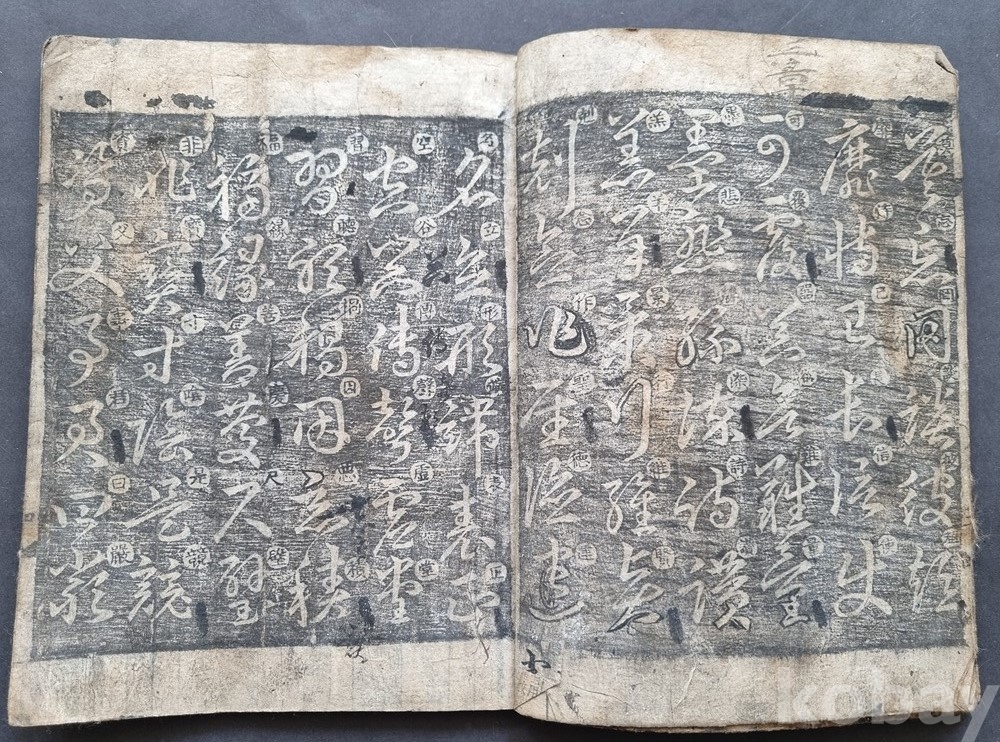 莫忘罔談彼短
靡恃己長信使
可覆器欲難量
墨悲絲染詩讚
羔羊景行維賢
剋念作聖德建
名立形端表正
空谷傳聲虛堂
習聽禍因惡積
福緣善慶尺璧
非寶寸陰是競
資父事君曰嚴
kobay